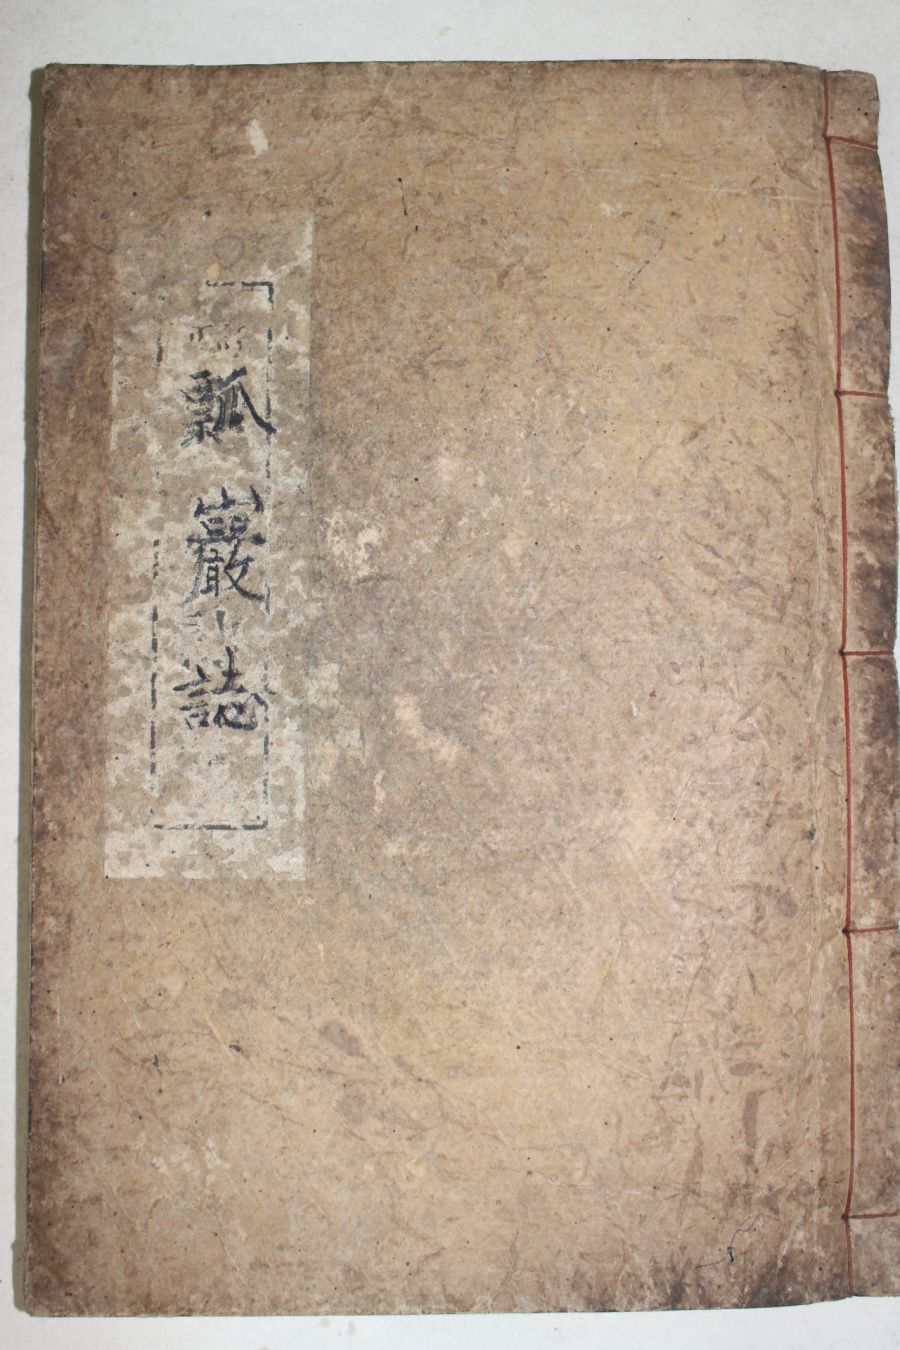 瓢巖誌